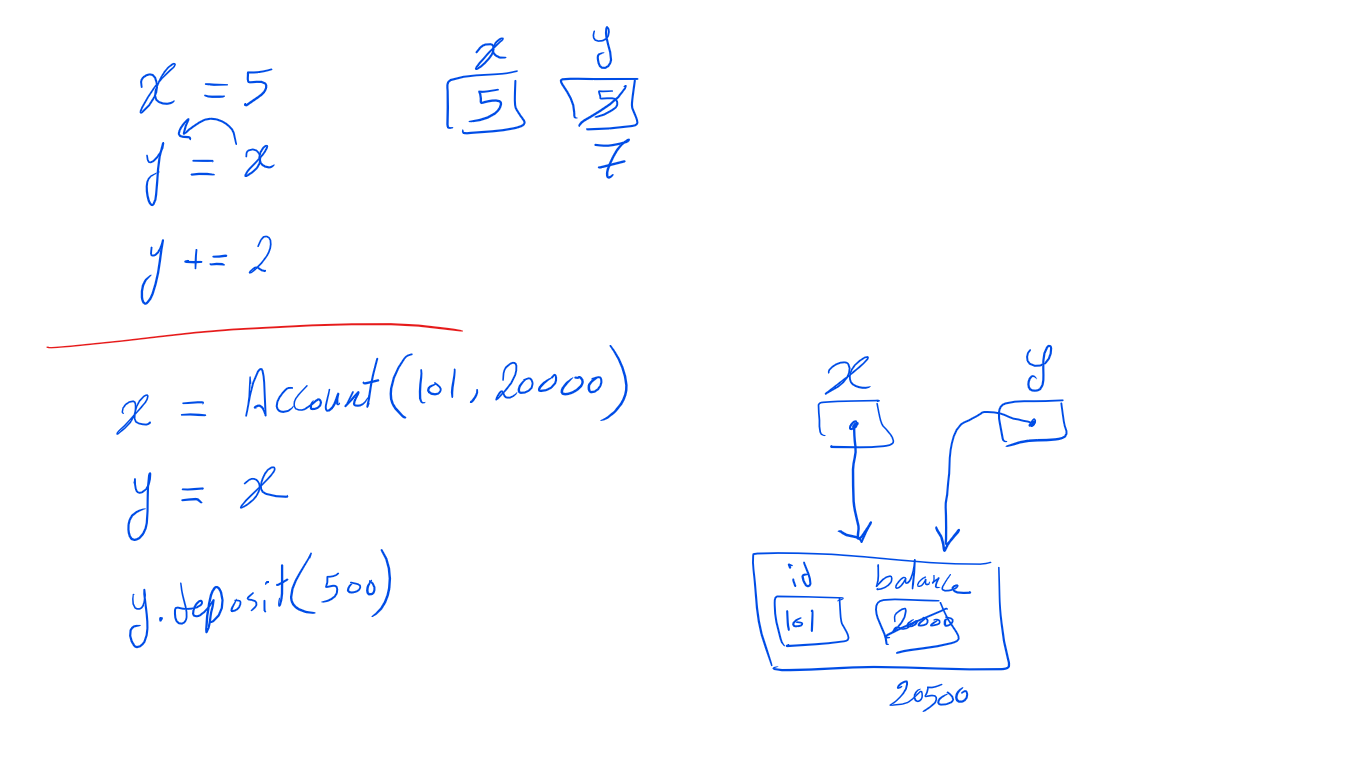 x = 5
y = x
y += 2
x y
5 5
7
x = Account(101, 20000)
y = x
y.deposit(500)
x y
id balance
101 20000
20500